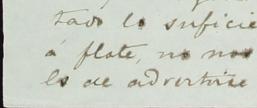 tado lo suficie
á flote, no nos
es de advertirse